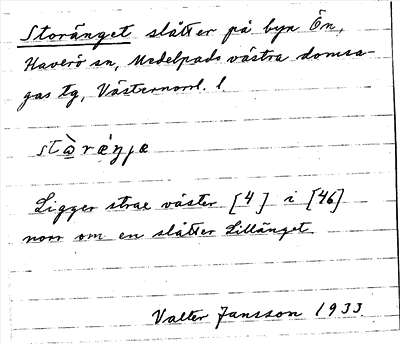 Storänget slåtter på byn Ön,
Haverö sn, Medelpads västra domsa-
gas tg, Västernorrl. l
Ligger strax väster [4] i [46]
norr om en slåtter Lillänget.
Valter Jansson 1933.